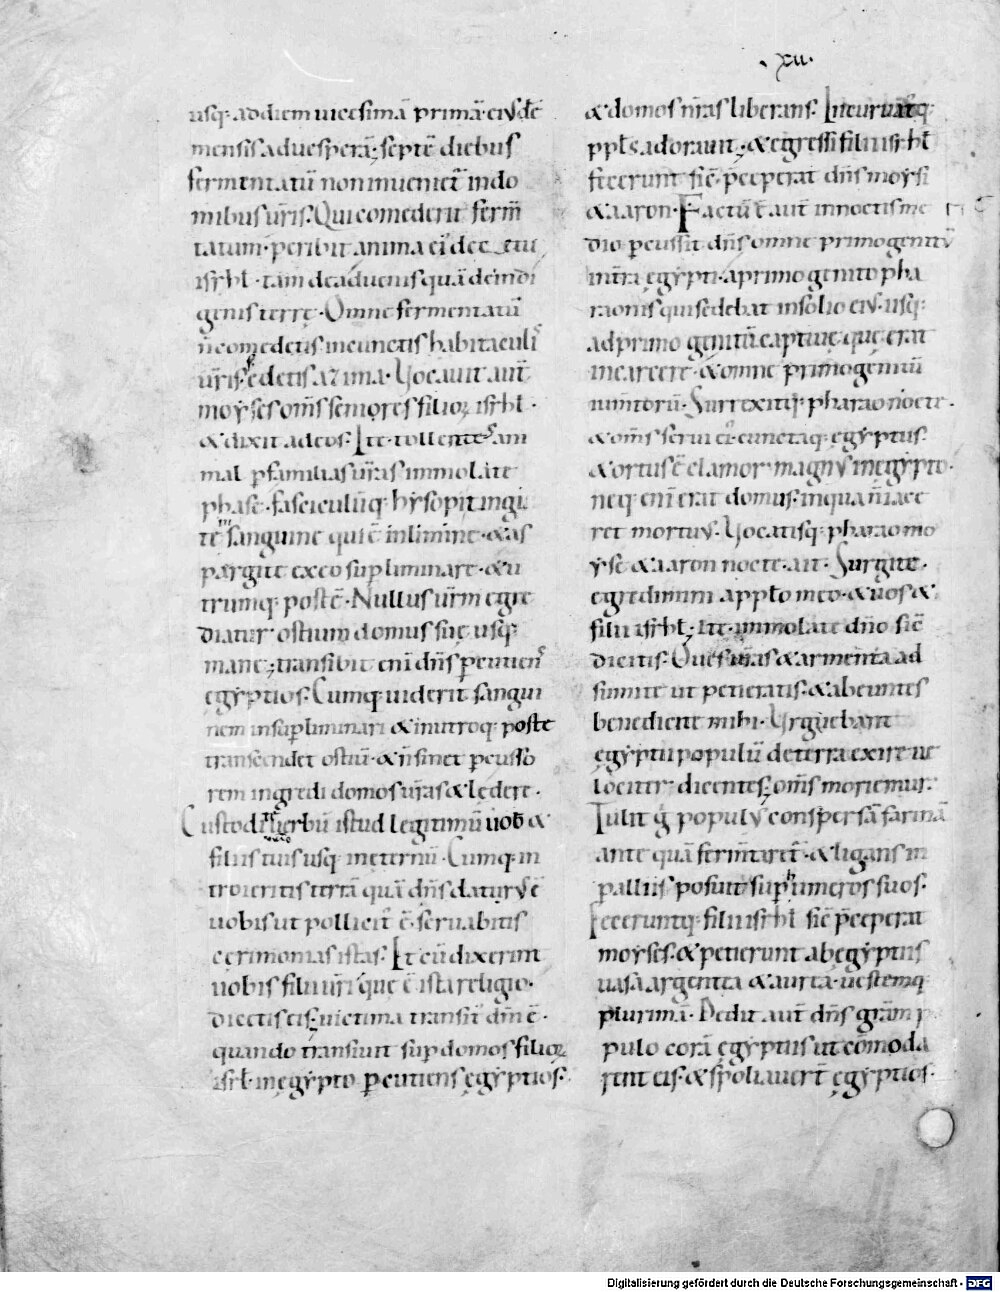 .xii.
usq; ad diem uicesimā primā eiusdē
mensis ad uesperā; septē diebus
fermentatū non inuenietˉ in do
mibus uris. Qui comederit ferm̄
tatum. peribit anima ei de cetu
isrhl. tam de aduenis quā de indi
genis terrę. Omne fermentatū
n̄ comedetis. in cunctis habitaculis
uris. edetis azima. Uocauit aut̄
moyses om̄s seniores filioꝝ isrhl.
& dixit ad eos. Ite tollentes ani
mal p familias uras immolate
phase. fasciculūq; hysopi tingi
te sanguine qui ē in limine. & as
pargite ex eo supliminare. & u
trumq; postē. Nullus urm egre
diatur ostium domus suę usq;
mane; transibit eni dn̄s pcutiens
ęgyptios. Cumq; uiderit sangui
nem in supliminari & in utroq; poste
transcendet ostiū. & n̄ sinet pcusso
rem ingredi domos uras & ledere.
Custodi uerbū istud legitimū tibi &
filiis tuis usq; in eternū. Cumq; in
troieritis terrā quā dn̄s daturus ē
uobis ut pollicit̄ ē. seruabitis
cęrimonias istas. Et cū dixerint
uobis filii uri quę ē ista religio.
dicetis eis; uictima transit̄ dni ē.
quando transiuit sup domos filioꝝ
isrl in ęgypto pcutiens ęgyptios.
& domos nras liberans. Incuruatusq;
ppl̄s adorauit; & egressi filii isrhl
fecerunt sic̄ p̄ceperat dn̄s moysi
& aaron. Factū ē aut̄ in noctis me
dio pcussit dn̄s omne primogenitū
in tra ęgypti. a primogenito pha
raonis qui sedebat in solio eius. usq;
ad primogenitū captiuę quę erat
in carcere. & omne primogenitū
iumtorū. Surrexitq; pharao nocte.
& om̄s serui ei. cunctaq; ęgyptus.
& ortus ē clamor magnus in egypto.
neq; eni erat domus. in qua n̄ iace
ret mortuus. Uocatisq; pharao mo
yse & aaron nocte. ait. Surgite.
egredimini a pplo meo. & uos &
filii isrhl. ite immolate dn̄o sic̄
dicitis. Oues uras & armenta ad
sumite ut petieratis. & abeuntes
benedicite mihi. Urguebant
ęgyptii populū de terra exire ue
lociter dicentes; om̄s moriemur.
Tulit g̊ populus conspersā farinā
ante quā fermtaretˉ. & ligans in
palliis posuit sup humeros suos.
Feceruntq; filii isrhl sic̄ p̄ceperat
moyses. & petierunt ab ęgyptiis
uasa argentea & aurea. uestemq;
plurimā. Dedit aut̄ dn̄s gram po
pulo corā ęgyptiis ut cōmoda
rent eis. & spoliauert̄ ęgyptios.
Digitalisierung gefördert durch die Deutsche Forschungsgemeinschaft - DFG